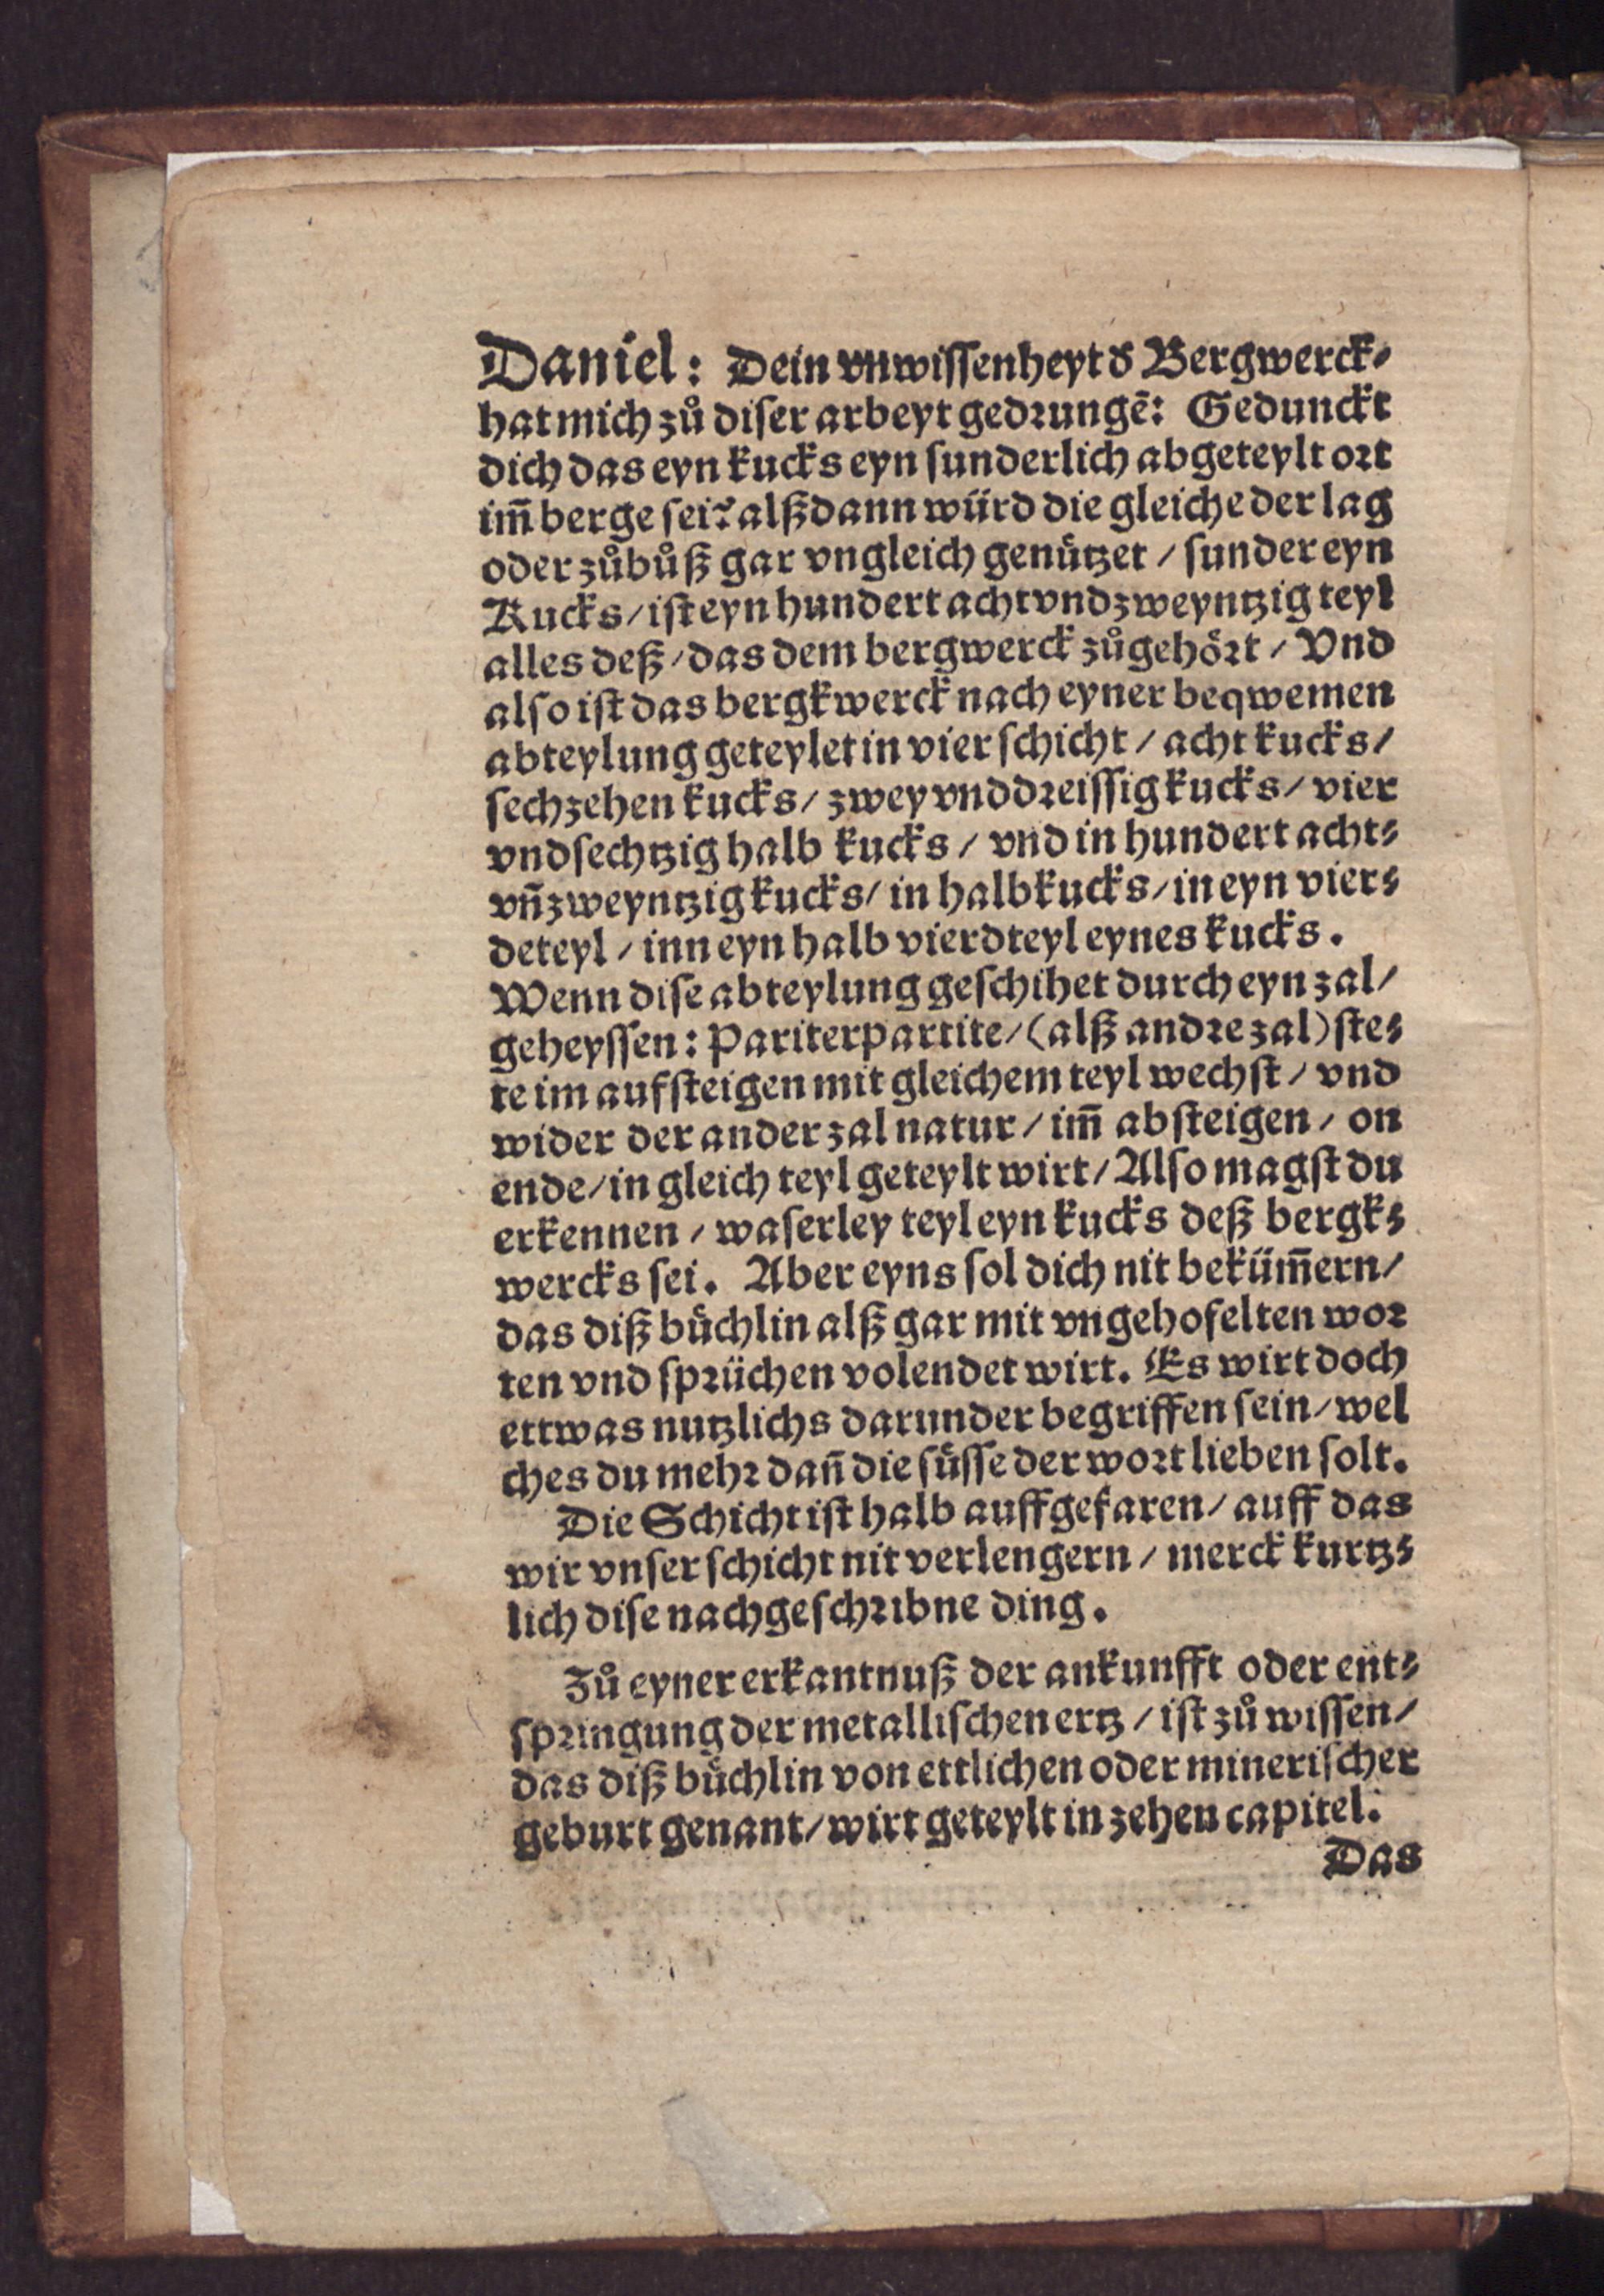 Daniel: Dein vnwissenheyt d̕ Bergwerck⸗
hat mich zů diser arbeyt gedrungẽ: Gedunckt
dich das eyn kucks eyn sunderlich abgeteylt ort
im̃ berge sei? alßdann würd die gleiche der lag
oder zůbůß gar vngleich genützet / sunder eyn
Kucks / ist eyn hundert acht vnd zweyntzig teyl
alles deß / das dem bergwerck zůgehört / Vnd
also ist das bergkwerck nach eyner beqwemen
abteylung geteylet in vier schicht / acht kucks /
sechzehen kucks / zwey vnd dreissig kucks / vier
vnd sechtzig halb kucks / vnd in hundert acht⸗
vñ zweyntzig kucks / in halb kucks / in eyn vier⸗
deteyl / inn eyn halb vierdteyl eynes kucks.
Wenn dise abteylung geschihet durch eyn zal /
geheyssen: Pariterpartite / (alß andre zal) ste⸗
te im aufsteigen mit gleichem teyl wechst / vnd
wider der ander zal natur / im̃ absteigen / on
ende / in gleich teyl geteylt wirt / Also magst du
erkennen / waserley teyl eyn kucks deß bergk⸗
wercks sei. Aber eyns sol dich nit beküm̃ern /
das diß büchlin alß gar mit vngehofelten wor
ten vnd sprüchen volendet wirt. Es wirt doch
ettwas nutzlichs darunder begriffen sein / wel
ches du mehr dañ die süsse der wort lieben solt.
Die Schicht ist halb auffgefaren / auff das
wir vnser schicht nit verlengern / merck kurtz⸗
lich dise nachgeschribne ding.
Zů eyner erkantnuß der ankunfft oder ent⸗
springung der metallischen ertz / ist zů wissen /
das diß büchlin von ettlichen oder minerischer
geburt genant / wirt geteylt in zehen capitel.
Das